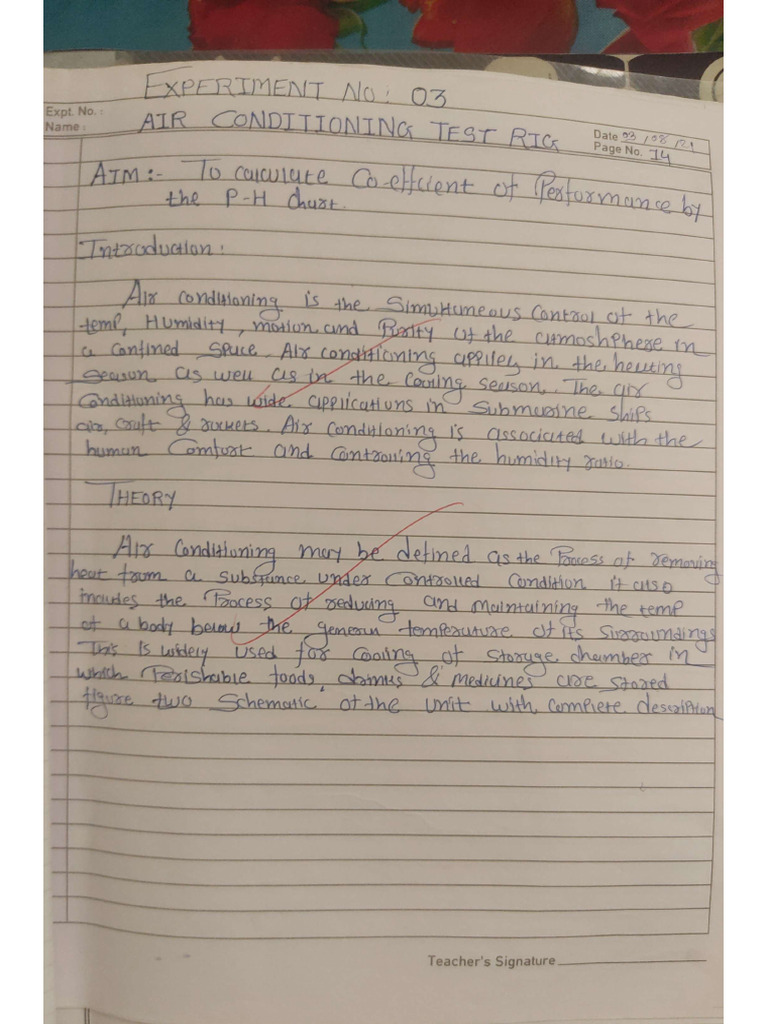 EXPERIMENT NO: 03
Expt. No. :
Name :
AIR CONDITIONING TEST RIG
Date 03/08/21
Page No. 14
AIM:- To calculate Co-effcient of Performance by
the P-H chart.
Introduction:
Air conditioning is the Simultaneous control of the
temp, Humidity, motion and Purity of the atmoshphere in
a confined space. Air conditioning applies in the heating
season as well as in the cooling season. The air
conditioning has wide applications in submarine ships
air, craft & rockets. Air conditioning is associated with the
human comfort and controlling the humidity ratio.
THEORY
Air conditioning may be defined as the Process of removing
heat from a substance under controlled condition it also
includes the Process of reducing and maintaining the temp
of a body below the general temperature of its sirroundings
This is widely used for cooling of storage chamber in
which Perishable foods, & medicines are stored
figure two schematic of the unit with complete description
Teacher's Signature